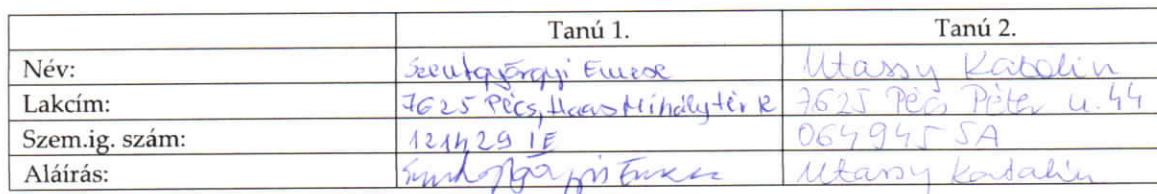 Tanú 1. Tanú 2.
Név: Szentgyörgyi Emese Utassy Katalin
Lakcím: 7625 Pécs, Haas Mihály tér 12 7625 Pécs Péter u. 44
Szem.ig. szám: IE 064945 SA
Aláírás: Szentgyörgyi Emese Utassy Katalin